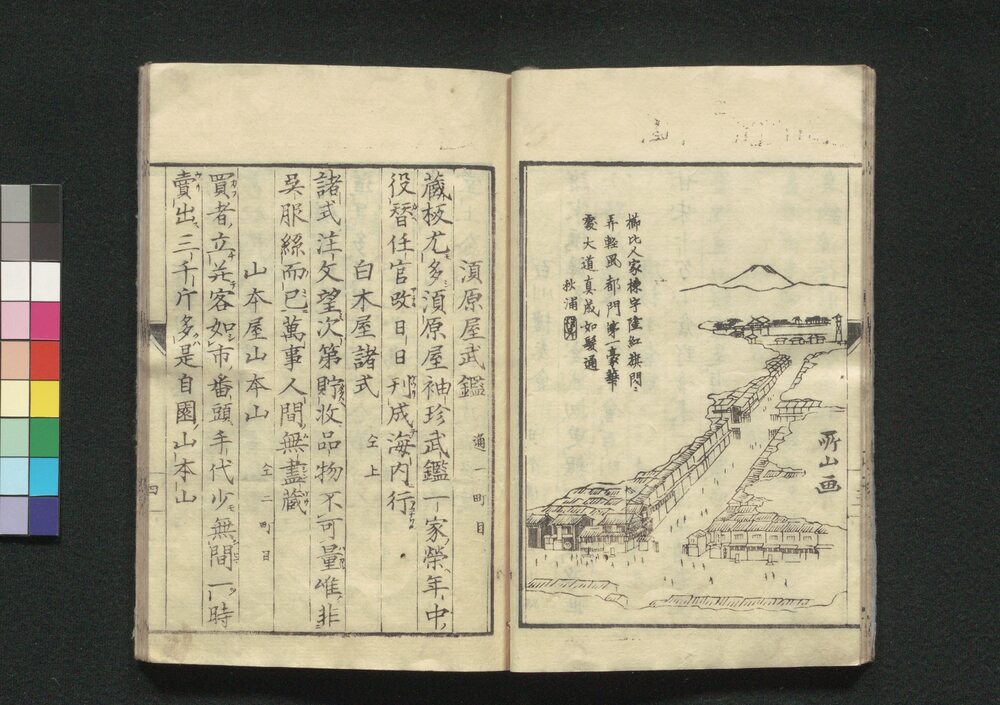 櫛比人家棟宇陸紅旗閃〻
弄軽風都門第一豪華
裏大道真成如髪通
秋浦
所山画
須原屋武鑑 通一町目
蔵板尤多須原屋袖珍武鑑一家栄年中
役替任官改日日刊成海内行
白木屋諸式 仝上
諸式注文望次第貯收品物不可量唯非
呉服絲而已萬事人間無盡藏
山本屋山本山 仝二町目
買者立并客如市番頭手代少無間一時
賣出三千斤多是自園山本山
四